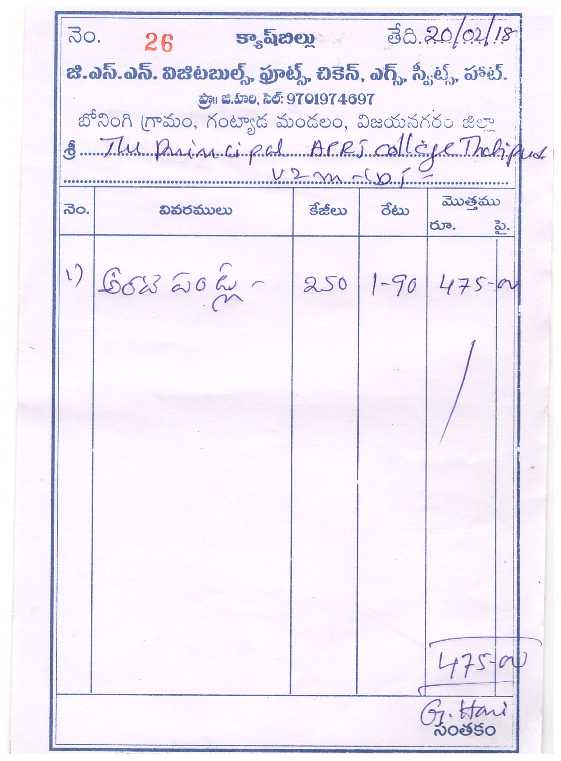 నెం. 26 క్యాష్‌బిల్లు తేది. 20/02/18
జి.ఎస్.ఎన్. విజిటబుల్స్, ఫ్రూట్స్, చికెన్, ఎగ్స్, స్వీట్స్, హాట్.
ప్రొ॥ జి.హరి, సెల్: 9701974697
బోనింగి గ్రామం, గంట్యాడ మండలం, విజయనగరం జిల్లా
శ్రీ The Principal APRJ college Thatipudi
VZM-(Dt)
నెం. వివరములు కేజీలు రేటు మొత్తము
రూ. పై.
1) అరటి పండ్లు - 250 1-90 475-00
475-00
G. Hari
సంతకం